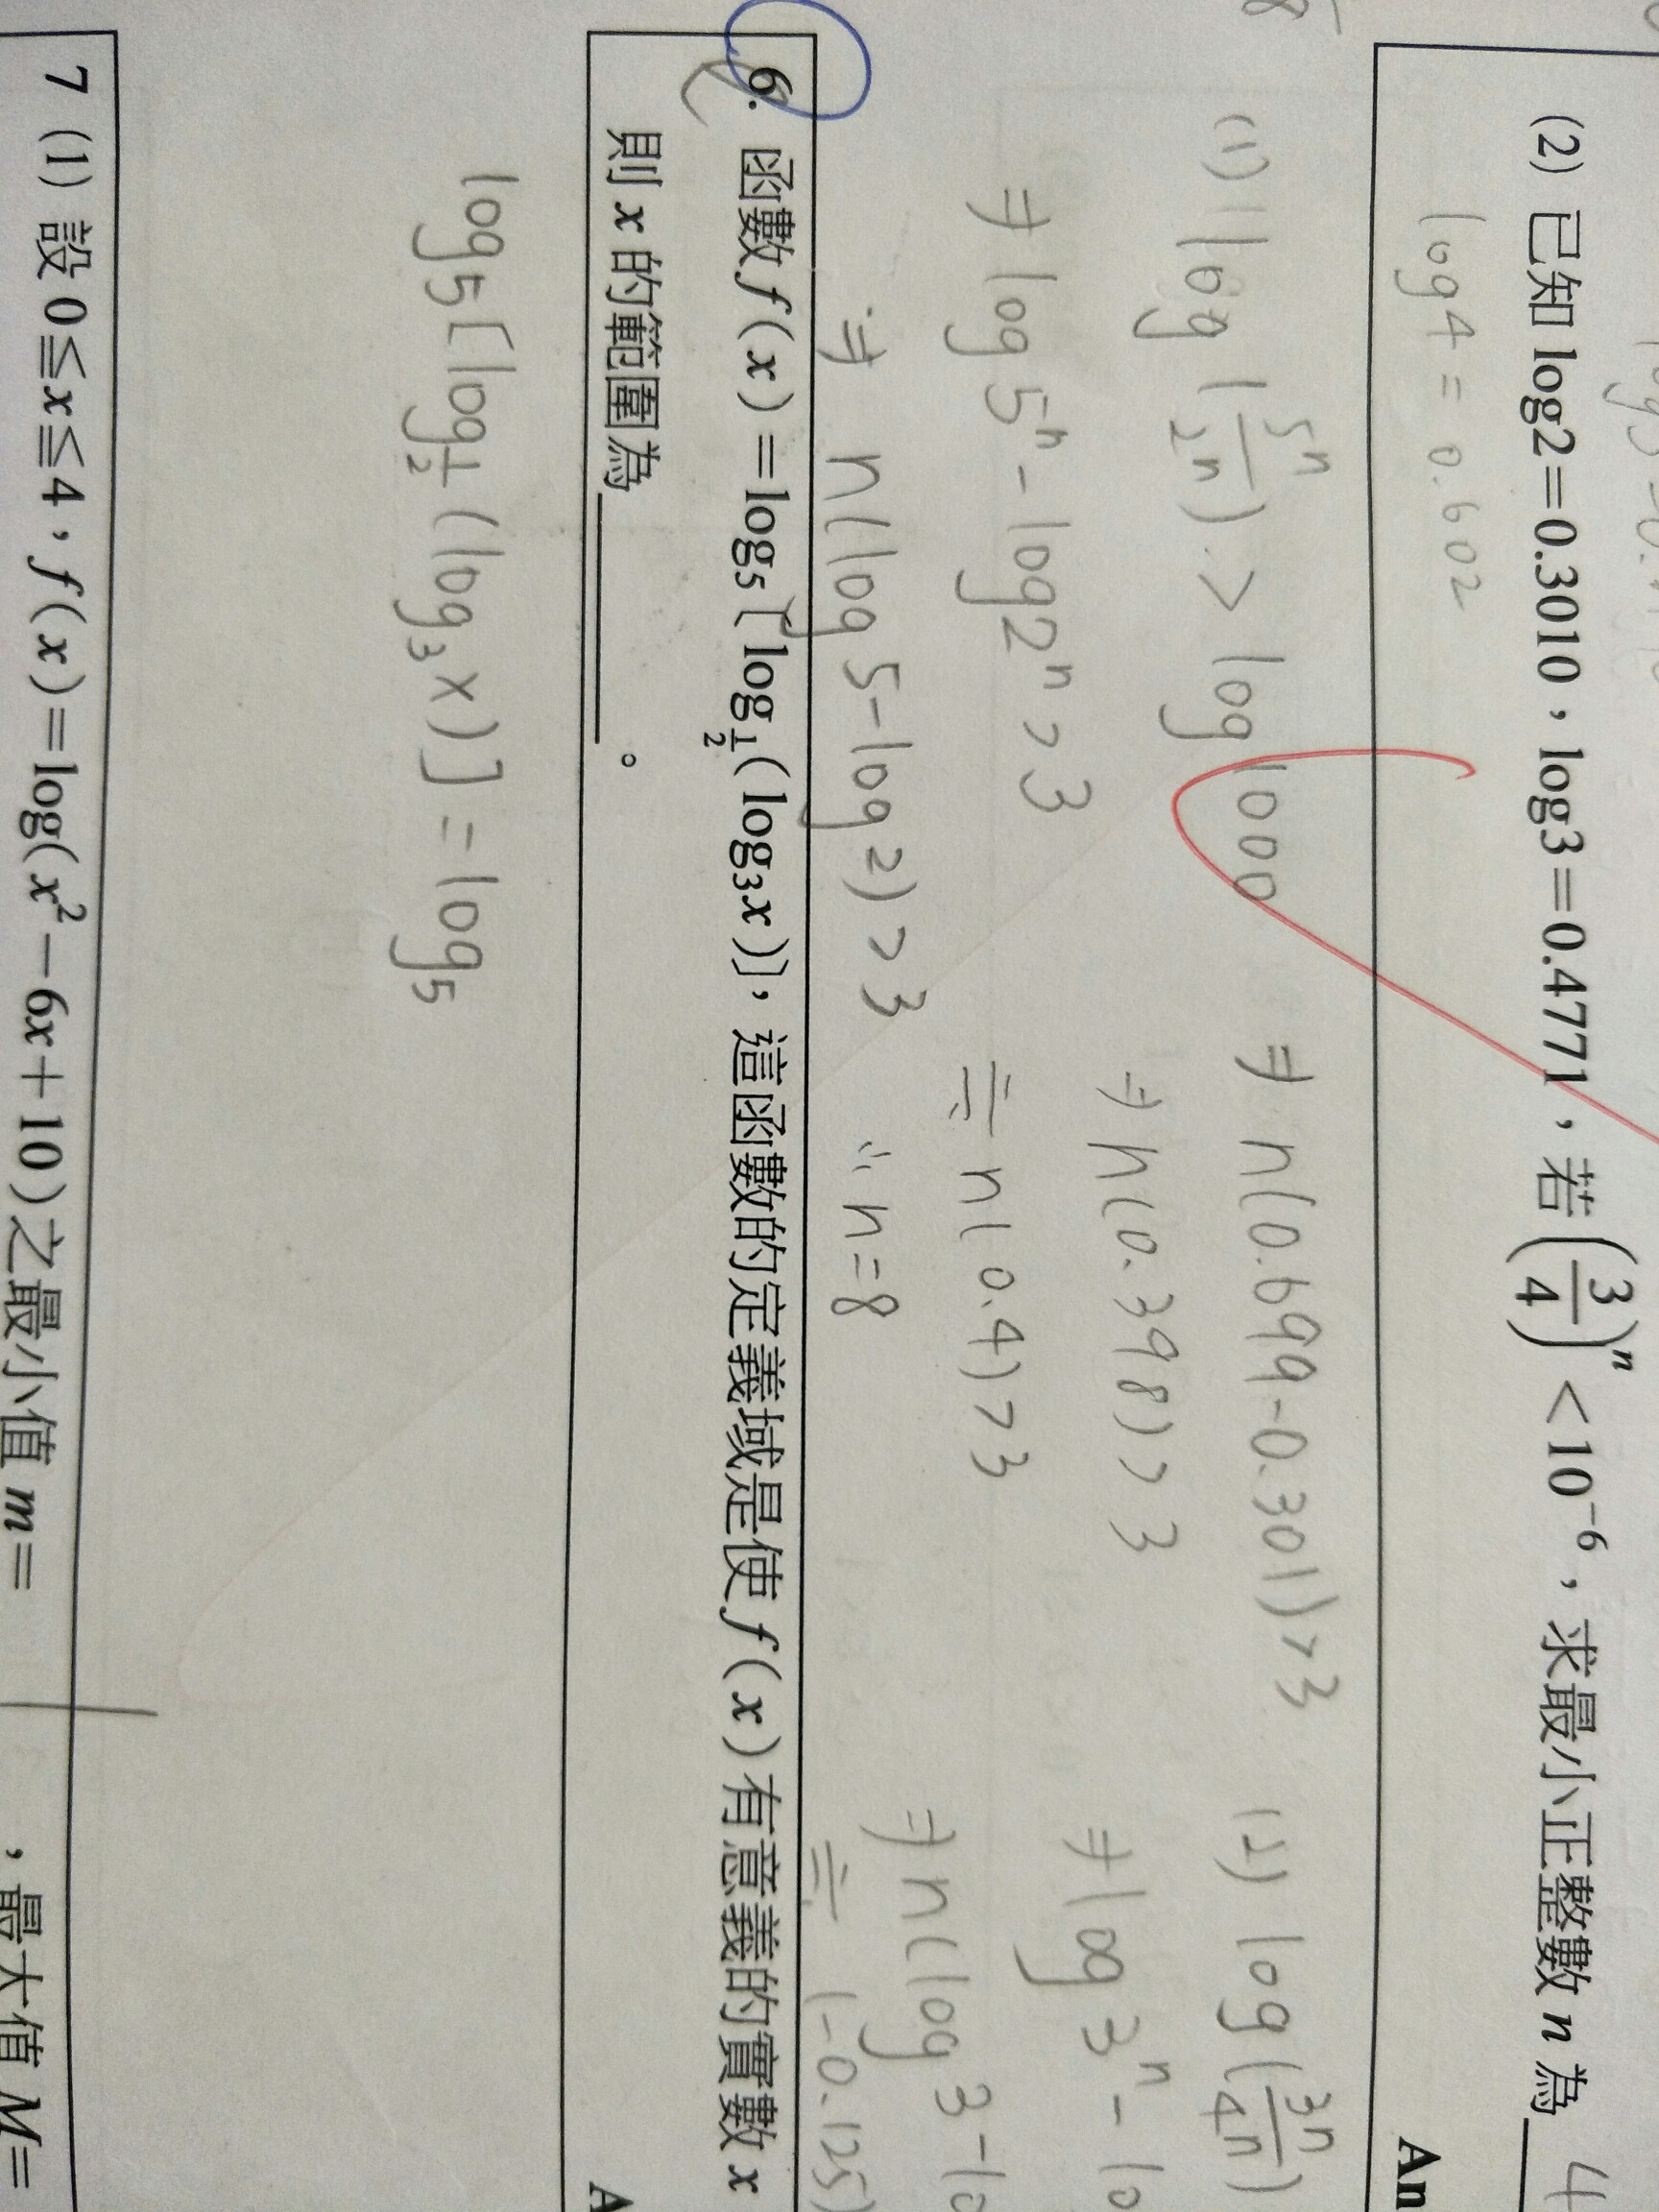 (2) 已知 log2=0.3010，log3=0.4771，若 (3/4)ⁿ <10⁻⁶，求最小正整數 n 為 4
An
log4 = 0.602
(1) log (5ⁿ/2ⁿ) > log 1000
⇒ log 5ⁿ - log 2ⁿ > 3
⇒ n(log 5 - log 2) > 3
⇒ n(0.699-0.301) > 3
⇒ n(0.398) > 3
≒ n(0.4) > 3
∴ n=8
(2) log (3ⁿ/4ⁿ)
⇒ log 3ⁿ - lo
⇒ n(log 3 - lo
≒ (-0.125)
6. 函數 f(x)=log₅[log_{1/2}(log₃x)]，這函數的定義域是使 f(x)有意義的實數 x
則 x 的範圍為______。
A
log₅[log_{1/2}(log₃x)] = log₅
7 (1) 設 0≦x≦4，f(x)=log(x²-6x+10)之最小值 m= ，最大值 M=